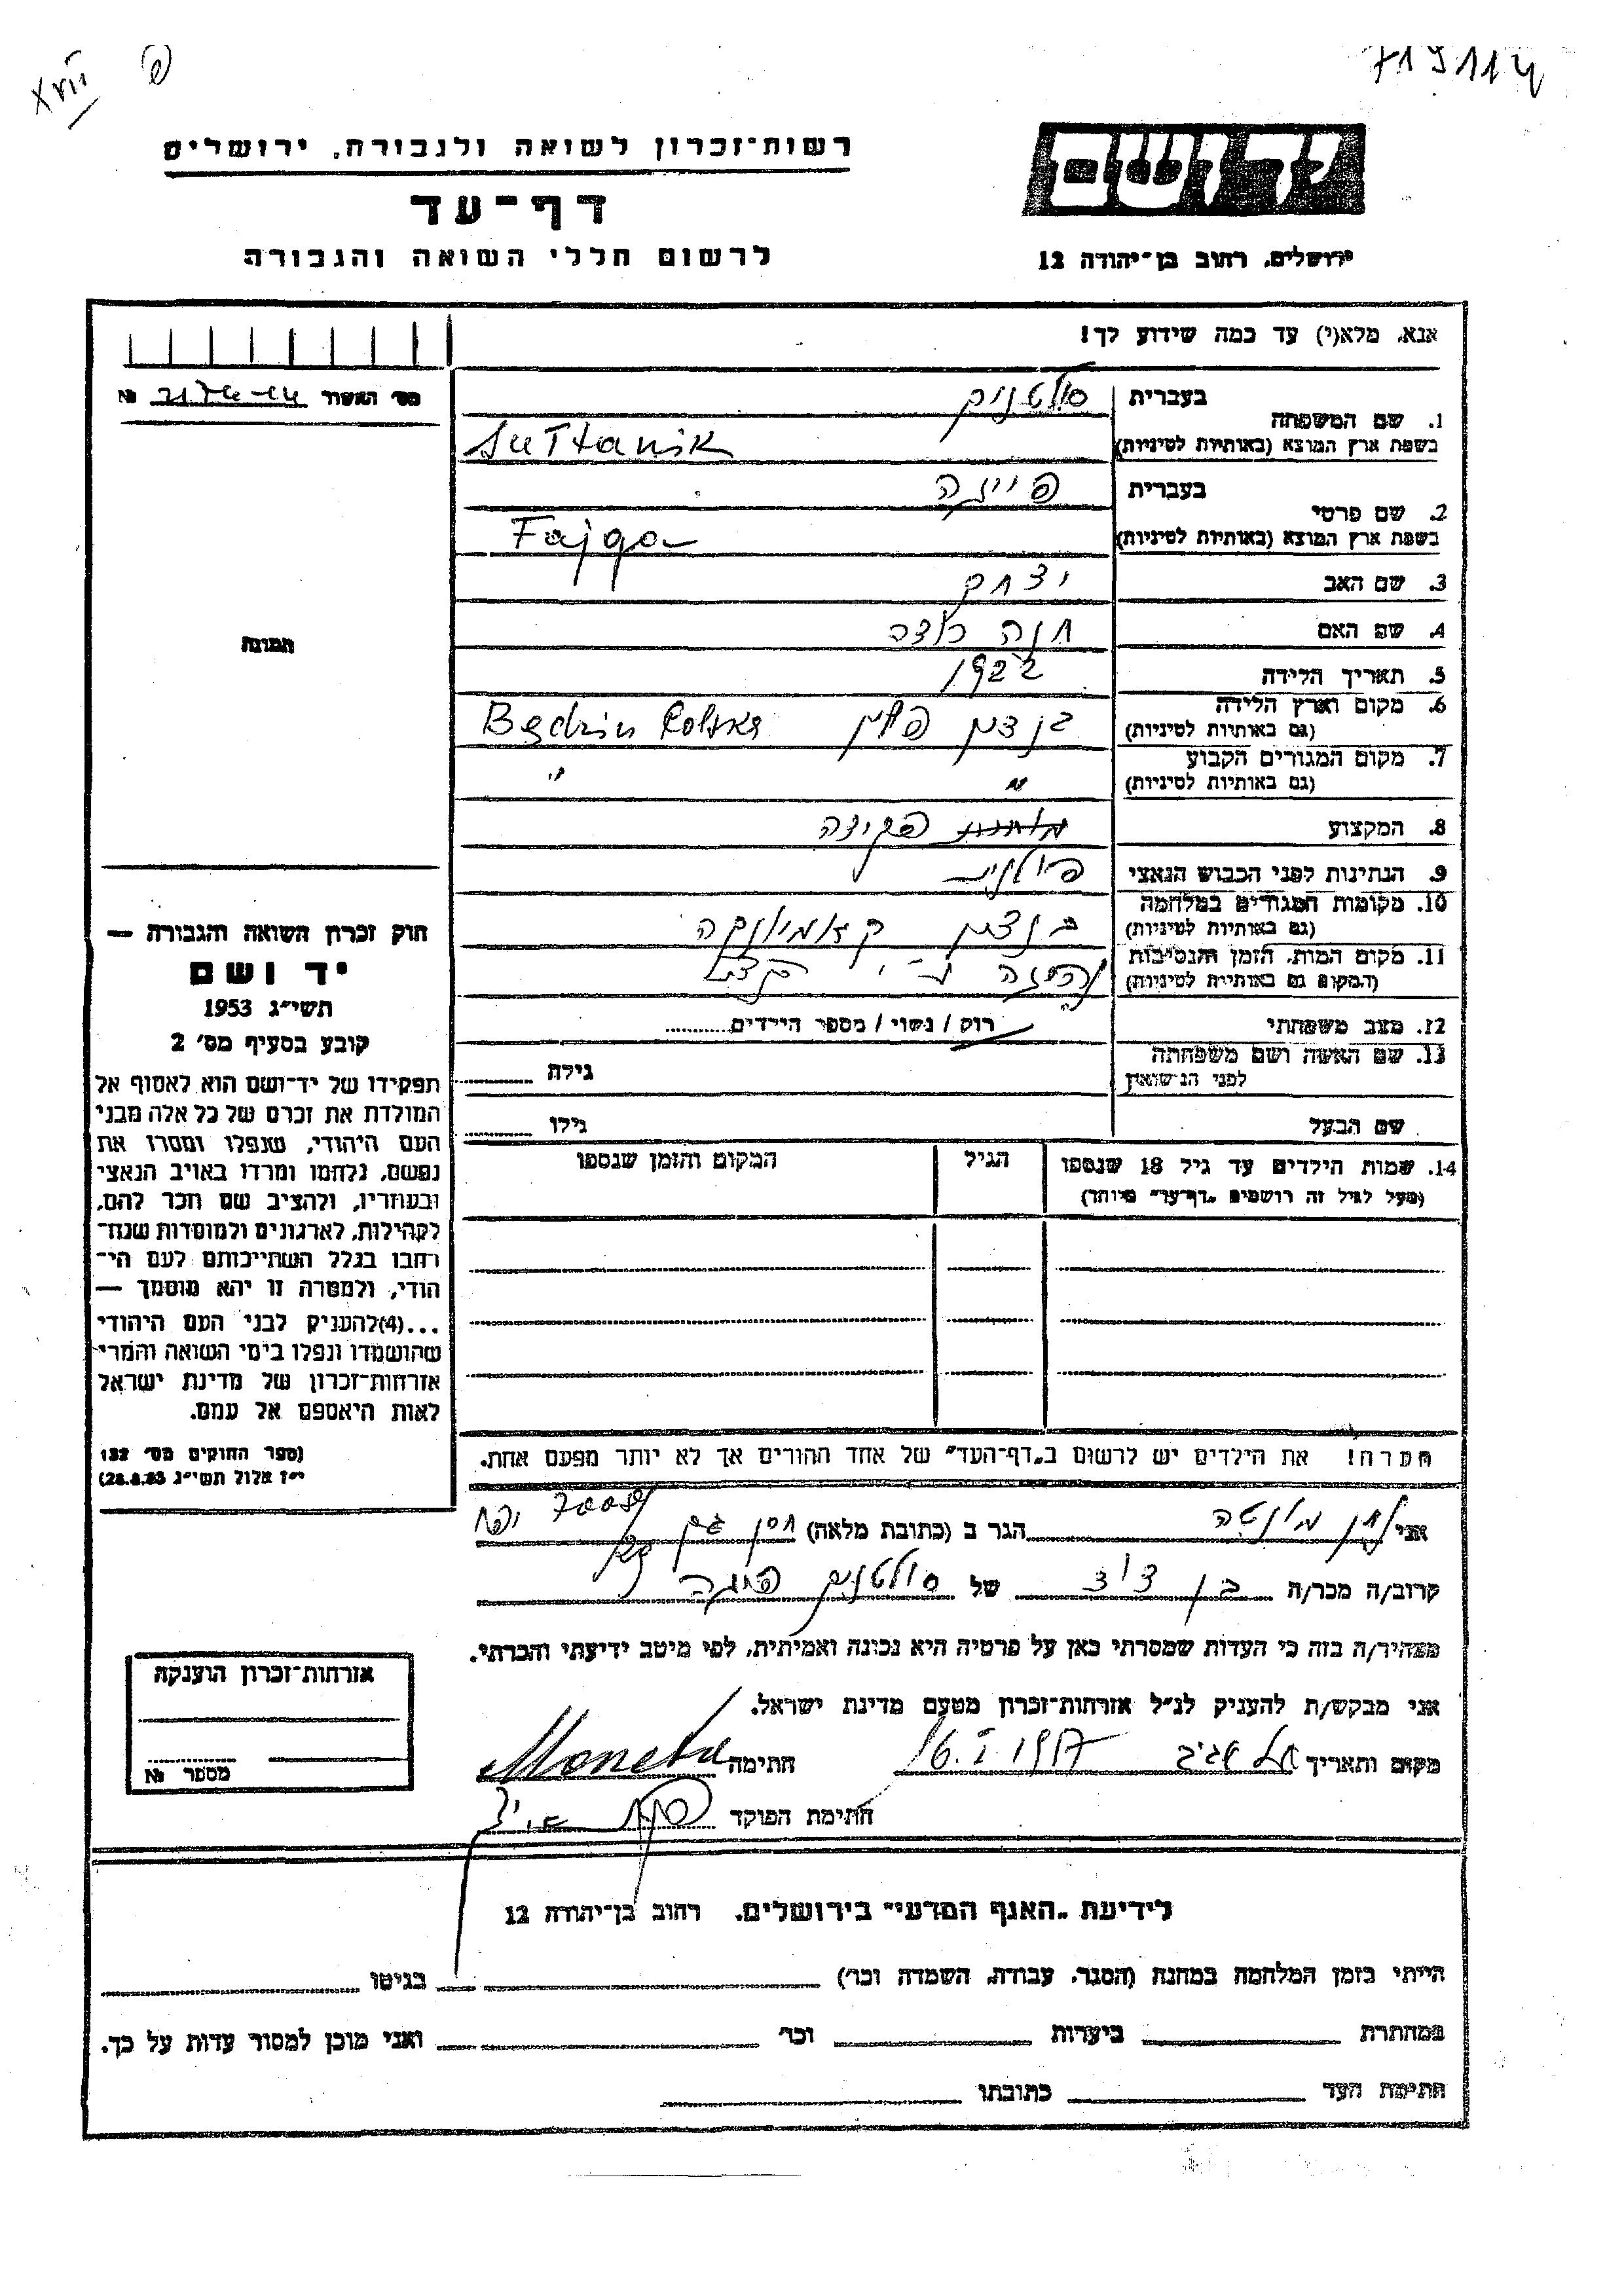 719114
XVII
רשות־זכרון לשואה ולגבורה, ירושלים
דף־עד
לרשום חללי השואה והגבורה
יד ושם
ירושלים, רחוב בן־יהודה 12
אנא, מלא(י) עד כמה שידוע לך!
מס׳ האשור №
1. שם המשפחה בעברית סולטניק
בשפת ארץ המוצא (באותיות לטיניות) Sułtanik
2. שם פרטי בעברית פייגה
בשפת ארץ המוצא (באותיות לטיניות) Fajga
3. שם האב יצחק
4. שם האם חנה
5. תאריך הלידה 1922
6. מקום וארץ הלידה (גם באותיות לטיניות) בנדצין פולין Będzin Polska
7. מקום המגורים הקבוע (גם באותיות לטיניות) " "
8. המקצוע פקידה
9. הנתינות לפני הכבוש הנאצי פולנית
10. מקומות המגורים במלחמה (גם באותיות לטיניות) בנדצין קאמיונקה
11. מקום המות, הזמן והנסיבות (המקום גם באותיות לטיניות) נהרגה ע"י
12. מצב משפחתי רוק / נשוי / מספר הילדים
13. שם האשה ושם משפחתה לפני הנישואין גילה
שם הבעל גילו
14. שמות הילדים עד גיל 18 שנספו הגיל המקום והזמן שנספו
(מעל לגיל זה רושמים „דף־עד" מיוחד)
תמונה
חוק זכרון השואה והגבורה —
יד ושם
תשי״ג 1953
קובע בסעיף מס׳ 2
תפקידו של יד־ושם הוא לאסוף אל
המולדת את זכרם של כל אלה מבני
העם היהודי, שנפלו ומסרו את
נפשם, נלחמו ומרדו באויב הנאצי
ובעוזריו, ולהציב שם וזכר להם,
לקהילות, לארגונים ולמוסדות שנח־
רבו בגלל השתייכותם לעם הי־
הודי, ולמטרה זו יהא מוסמך —
...(4)להעניק לבני העם היהודי
שהושמדו ונפלו בימי השואה והמרי
אזרחות־זכרון של מדינת ישראל
לאות היאספם אל עמם.
(ספר החוקים מס׳ 132
י״ז אלול תשי״ג 28.8.53)
הערה! את הילדים יש לרשום ב„דף־העד" של אחד ההורים אך לא יותר מפעם אחת.
אני מונטה הגר ב (כתובת מלאה)
קרוב/ה מכר/ה בן דוד של סולטניק פייגה
מצהיר/ה בזה כי העדות שמסרתי כאן על פרטיה היא נכונה ואמיתית, לפי מיטב ידיעתי והכרתי.
אני מבקש/ת להעניק לנ״ל אזרחות־זכרון מטעם מדינת ישראל.
מקום ותאריך תל אביב 16.I.1957 חתימה Moneta
חתימת הפוקד
אזרחות־זכרון הוענקה
מספר №
לידיעת „האגף המדעי" בירושלים, רחוב בן־יהודה 12
הייתי בזמן המלחמה במחנה (הסגר, עבודת, השמדה וכו׳) בגיטו
במחתרת ביערות וכו׳ ואני מוכן למסור עדות על כך.
חתימת העד כתובתו